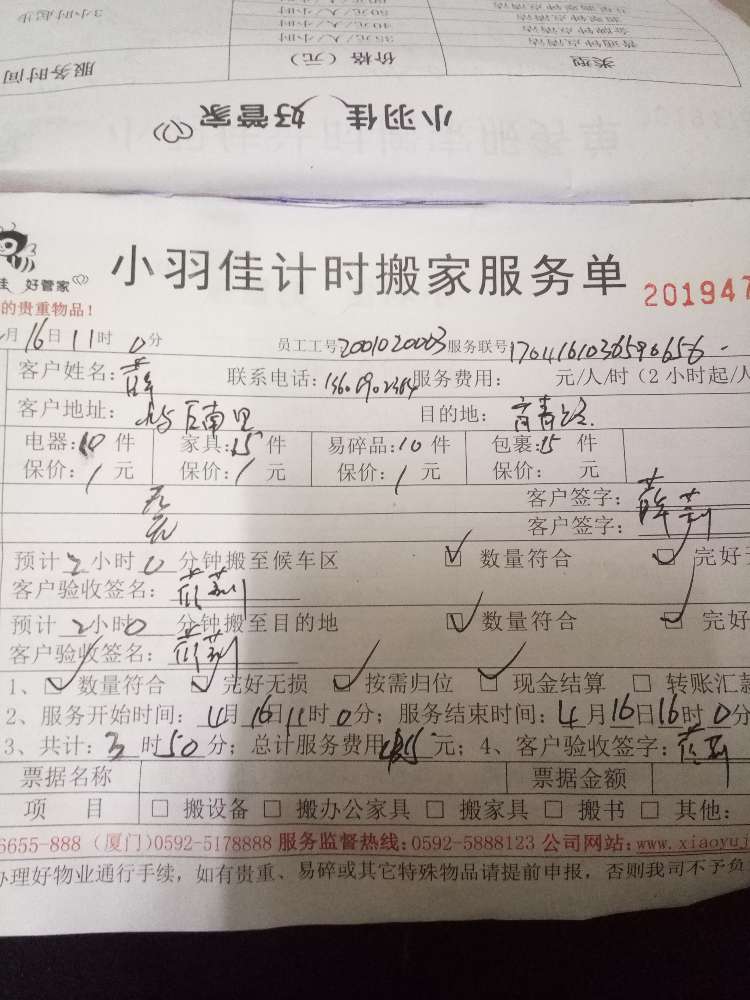 3小时起步
35元/人/小时
类型
价格（元）
服务时间
小羽佳 好管家
佳 好管家
小羽佳计时搬家服务单
201947
的贵重物品！
月16日11时0分
员工工号:2001020003
服务联号:
客户姓名:薛
联系电话:
服务费用: 元/人/时（2小时起/人
客户地址: 后南里
目的地:
电器:10件 家具:15件 易碎品:10件 包裹:15件
保价:1元 保价:1元 保价:1元 保价:1元
无 客户签字:薛莉
无 客户签字:
预计2小时0分钟搬至候车区 ☑数量符合 ☑完好无
客户验收签名:薛莉
预计2小时0分钟搬至目的地 ☑数量符合 ☑完好
客户验收签名:薛莉
1、☑数量符合 ☑完好无损 ☑按需归位 ☑现金结算 □转账汇款
2、服务开始时间:4月16日11时0分；服务结束时间:4月16日16时0分
3、共计:3时50分；总计服务费用 元；4、客户验收签字:薛莉
票据名称 票据金额
项 目 □搬设备 □搬办公家具 □搬家具 □搬书 □其他:
6655-888（厦门）0592-5178888 服务监督热线:0592-5888123 公司网站:www.xiaoyuj
办理好物业通行手续，如有贵重、易碎或其它特殊物品请提前申报，否则我司不予负